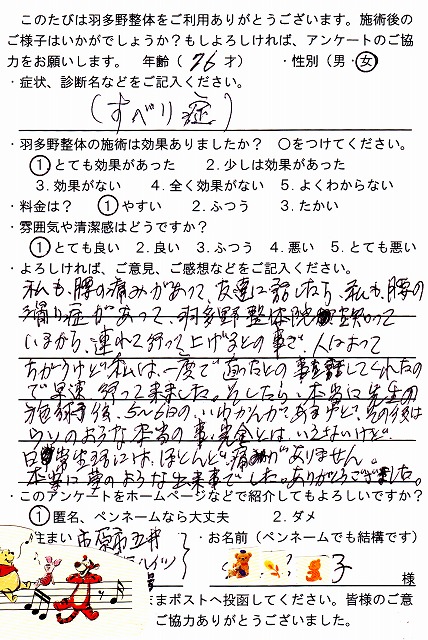 このたびは羽多野整体をご利用ありがとうございます。施術後の
ご様子はいかがでしょうか？もしよろしければ、アンケートのご協
力をお願いします。 年齢（ 76 才） ・性別（男・女）
・症状、診断名などをご記入ください。
（すべり症）
・羽多野整体の施術は効果ありましたか？ ○をつけてください。
1 とても効果があった 2.少しは効果があった
3.効果がない 4.全く効果がない 5.よくわからない
・料金は？ 1 やすい 2.ふつう 3.たかい
・雰囲気や清潔感はどうですか？
1 とても良い 2.良い 3.ふつう 4.悪い 5.とても悪い
・よろしければ、ご意見、ご感想などをご記入ください。
私も、腰の痛みがあって、友達に話したら、私も、腰の
滑り症があって、羽多野整体院知って
いるから、連れて行って上げるとの事で、人によって
ちがうけど私は、一度で直ったとの事話してくれたの
で早速、行って来ました。そしたら、本当に先生の
施術後、5～6日の、いわかんがあるけど、その後は
うそのような本当の事、完全とは、いえないけど
日常生活には、ほとんど痛みがありません。
本当に夢のような出来事でした。ありがとうございました。
・このアンケートをホームページなどで紹介してもよろしいですか？
1 匿名、ペンネームなら大丈夫 2.ダメ
住まい 市原市五井 ・お名前（ペンネームでも結構です）
ハイツ
号 子 様
ままポストへ投函してください。皆様のご意
ご協力ありがとうございました。